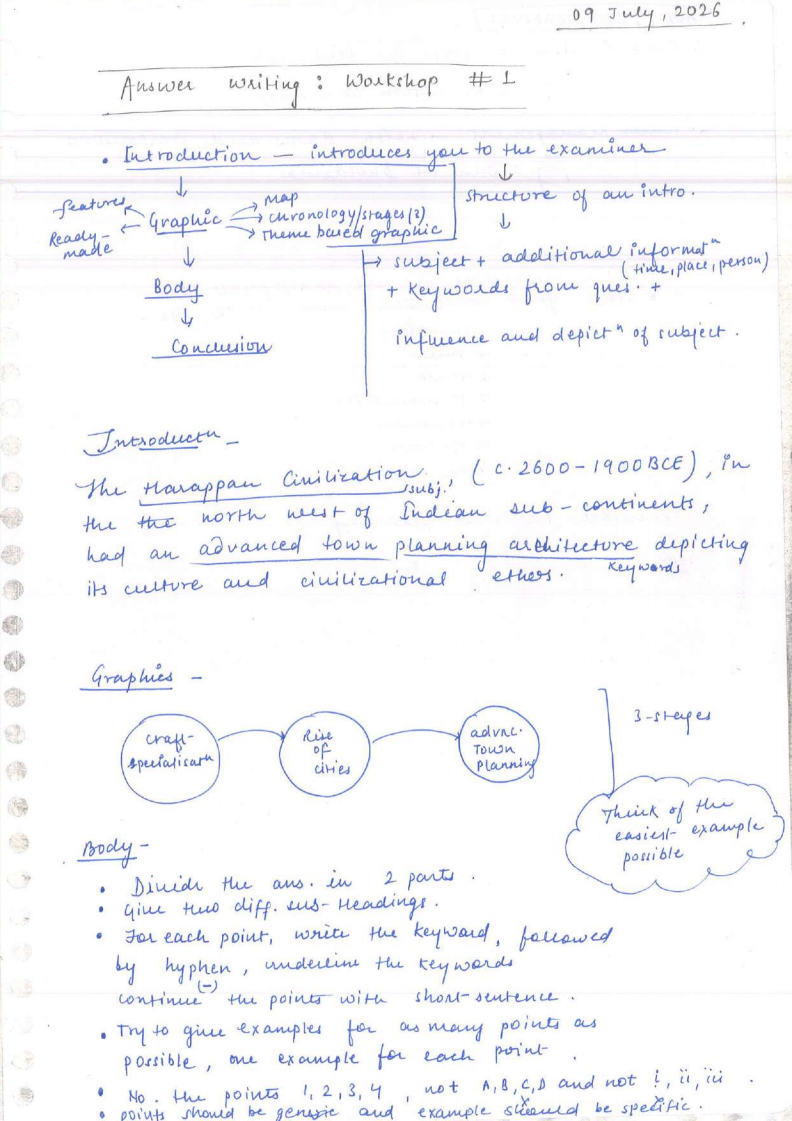 09 July, 2026.
Answer writing : Workshop # 1
• Introduction — introduces you to the examiner
↓ ↓
features ← Graphic → Map
Ready-made ← → chronology/stages(?)
→ Theme based graphic
structure of an intro.
↓ ↓
Body
↓
Conclusion
→ subject + additional informatⁿ
(time, place, person)
+ keywords from ques. +
influence and depictⁿ of subject.
Introductⁿ –
The Harappan Civilization, (c. 2600–1900 BCE), in
subj.
the the north west of Indian sub-continents,
had an advanced town planning architecture depicting
keywords
its culture and civilizational ethos.
Graphics –
craft-
specialisatn
Rise
of
cities
advnc.
Town
Planning
3-stages
Think of the
easiest example
possible
Body –
• Divide the ans. in 2 parts.
• Give two diff. sub-Headings.
• For each point, write the keyword, followed
by hyphen, underline the keywords
(-)
continue the points with short-sentence.
• Try to give examples for as many points as
possible, one example for each point.
• No. the points 1, 2, 3, 4, not A, B, C, D and not i, ii, iii.
• points should be generic and example should be specific.